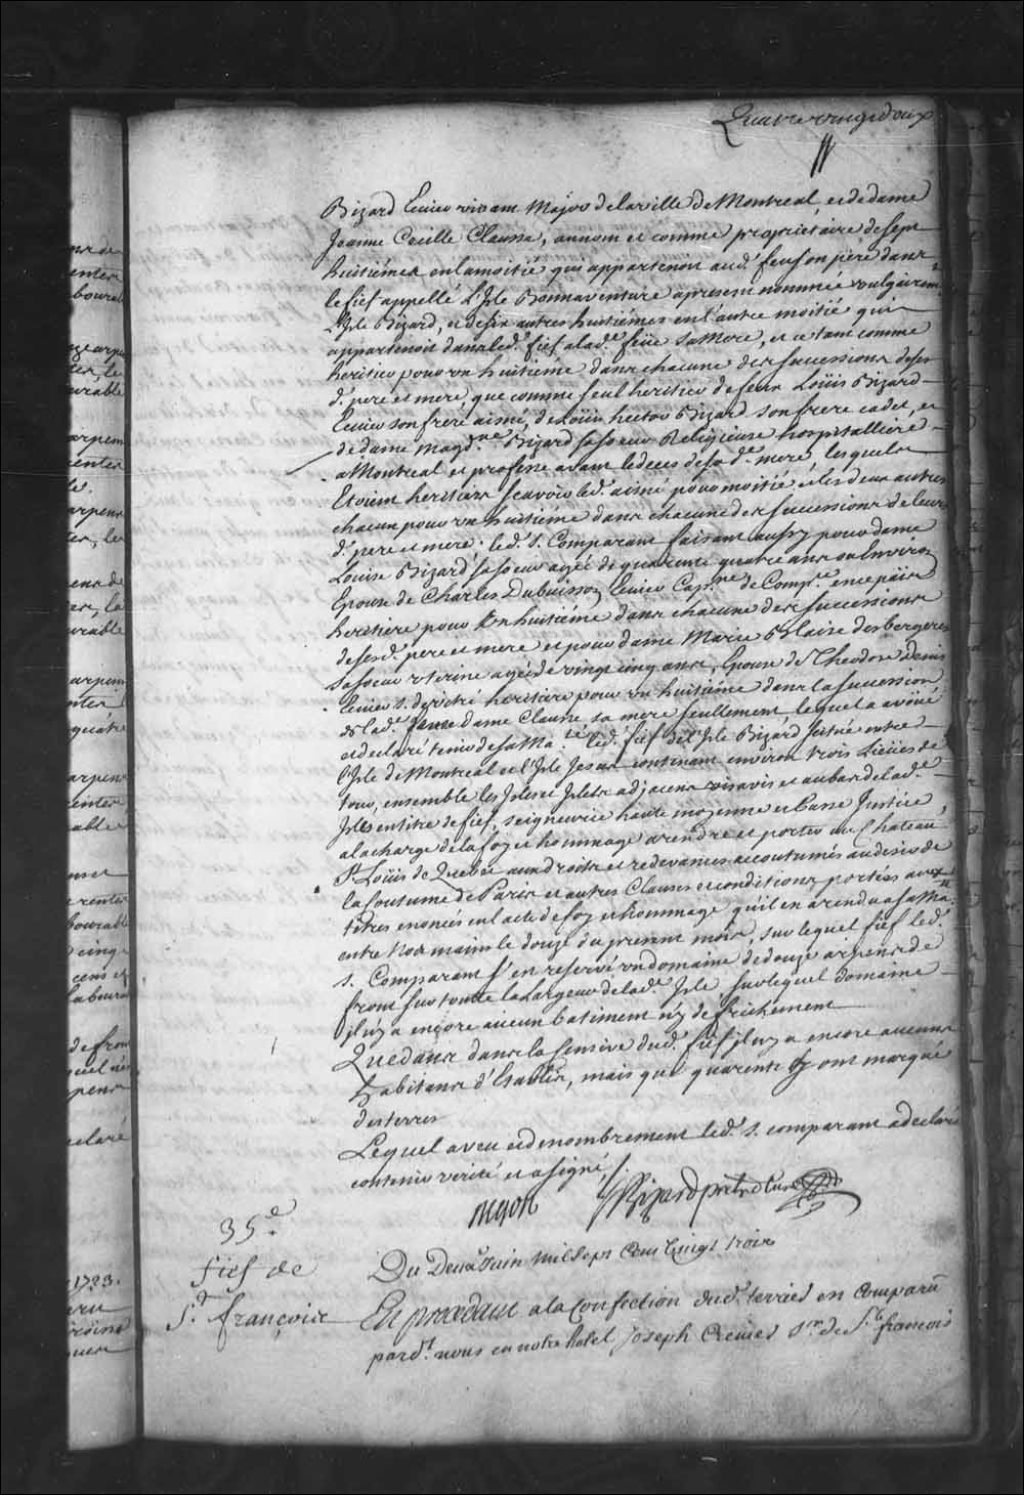 Quatre vingt deux
Bizard Ecuier vivant Major de la ville de Montreal, et de dame
Jeanne Cecille Clausse, au nom et comme proprietaire de sept
huitiémes en la moitié qui appartenoit aud. feu son pere dans
le fief appellé L'Isle Bonnaventure apresent nommée vulgairemt
L'Isle Bizard, et de six autres huitiémes en l'autre moitié qui
appartenoit dans led. fief a lade. feüe sa Mere, et ce tant comme
heritier pour un huitiéme dans chacune des successions de ses
d. pere et mere, que comme seul heritier de feux Loüis Bizard
Ecuier son frere aisné, de Loüis hector Bizard son frere cadet, et
de dame Magd.ne Bizard sa soeur Religieuse hospitalliere
a Montreal et professe avant le deces de sa de. mere, lesquels
Etoient heritiers scavoir led. aisné pour moitié et les deux autres
chacun pour un huitiéme dans chacune des successions de leurs
d. pere et mere; led. S. Comparant faisant aussy pour dame
Louise Bizard sa soeur ageé de quarente quatre ans ou Environ
Epouse de Charles Dubuisson Ecuier Cap.ne de Comp.ie en ce païs
heritiere pour un huitiéme dans chacune des successions
de sesd. pere et mere et pour dame Marie Blaise des bergeres
sa soeur uterine ageé de vingt cinq ans, Epouse de Theodore Denis
Ecuier S. de vitré heritiere pour un huitiéme dans la succession
de lade. dame Clausse sa mere seullement, lequel a avoüé
et declaré tenir de sa Ma.té led. fief de L'Isle Bizard scitué entre
l'Isle de Montreal et l'Isle Jesus contenant environ trois Lieües de
tour, ensemble les Isles et Islets adjacens vis avis et au bas de lade.
Isle en titre de fief, seigneurie haute moyenne et basse Justice,
a la charge de la foy et hommage a rendre et porter au Chateau
St. Loüis de Quebec aux droits et redevances accoutumés au desir de
la Coutume de Paris et autres Clauses et conditions portées aux
titres enoncés en l'acte de foy et hommage qu'il en a rendu a sa Ma.té
entre Nos mains le douze du present mois, sur lequel fief led.
S. Comparant s'en reservé un domaine de douze arpens de
front sur toutte la Largeur de lade. Isle sur lequel domaine
il n'y a encore aucun batiment n'y defrichement
Que dans dans la Censive dud. fief il n'y a encore aucuns
habitans d'Etablis, mais que quarente y ont marqué
des terres
Lequel aveu et denombrement led. S. comparant a declaré
contenir verité et a signé, /.
Begon
J Bizard ptre Curé
35.e
Fief de
St. françois
Du Deux Juin mil Sept Cens Vingt trois
En procedant a la Confection dud. terrier en Comparu
pard.t nous en notre hotel Joseph Crevier Sr. de St. francois